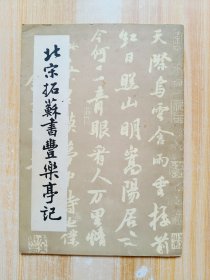 北宋拓蘇書豐樂亭記
天際烏雲含雨重樓前
紅日照山明嵩陽居士
今何在青眼看人万里情